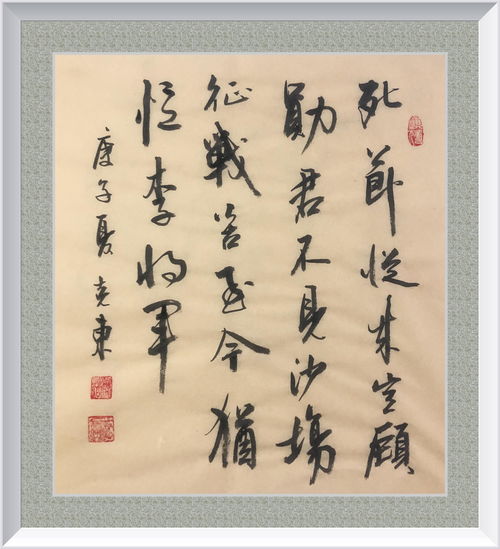 死節從來豈顧
勛君不見沙場
征戰苦至今猶
憶李將軍
庚子夏克東